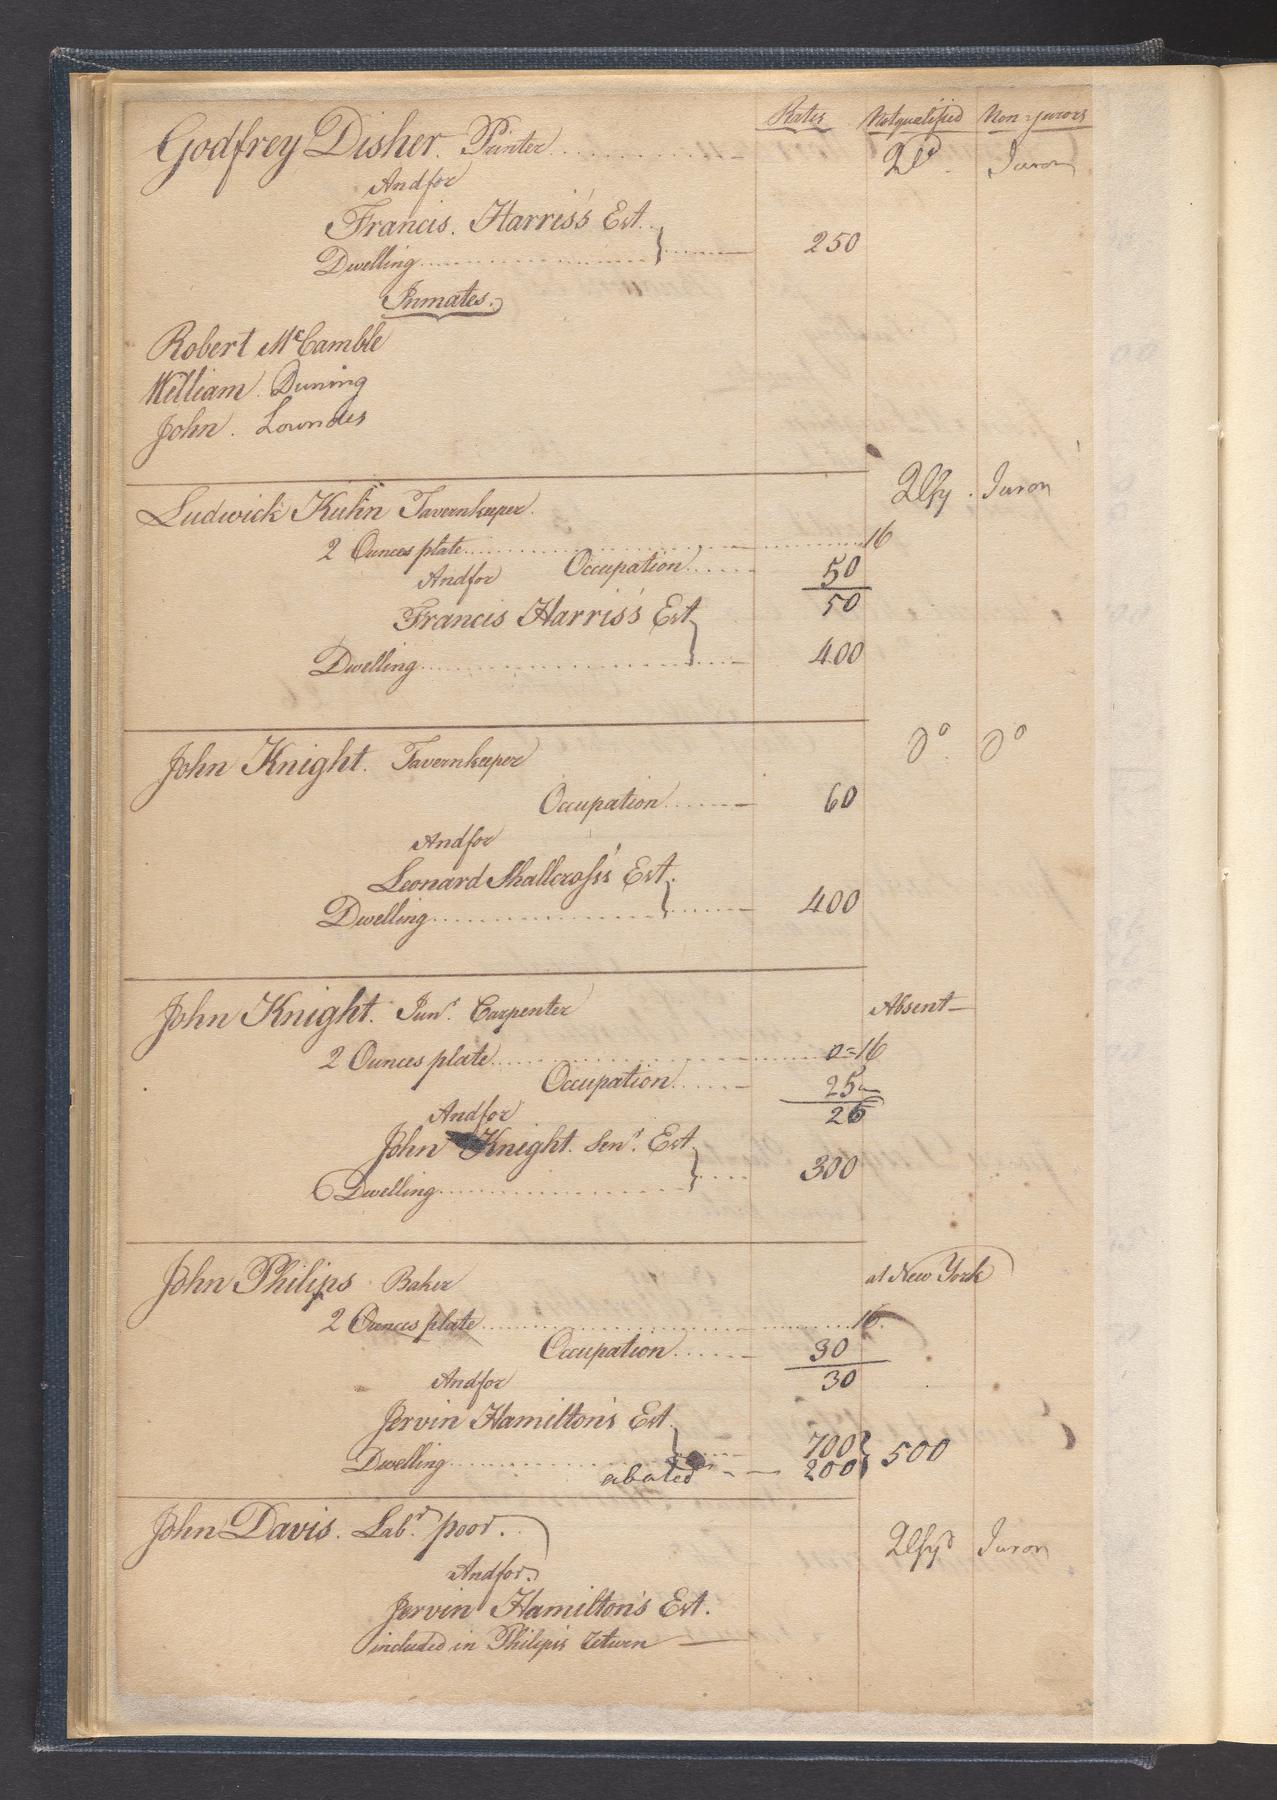 Rates Notqualified Non-jurors
Godfrey Disher. Printer Juron
Andfor
Francis. Harris's Est.
Dwelling 250
Inmates.
Robert McCamble
William. Duning
John. Lowndes
Ludwick Kuhn Tavernkeeper. Qlfy. Juron
2 Ounces plate 16
Occupation 50
Andfor 50
Francis Harris's Est
Dwelling 400
John Knight. Tavernkeeper Do Do
Occupation 60
Andfor
Leonard Shallcross's Est.
Dwelling 400
John Knight. Junr. Carpenter Absent
2 Ounces plate 0=16
Occupation 25
Andfor 26
John Knight. Senr. Est
Dwelling 300
John Philips Baker at New York
2 Ounces plate 16
Occupation 30
Andfor 30
Jervin Hamilton's Est.
Dwelling 700 } 500
abated 200
John Davis. Labr. poor. Qlfyd Juron
Andfor
Jervin Hamilton's Est.
included in Philips's return